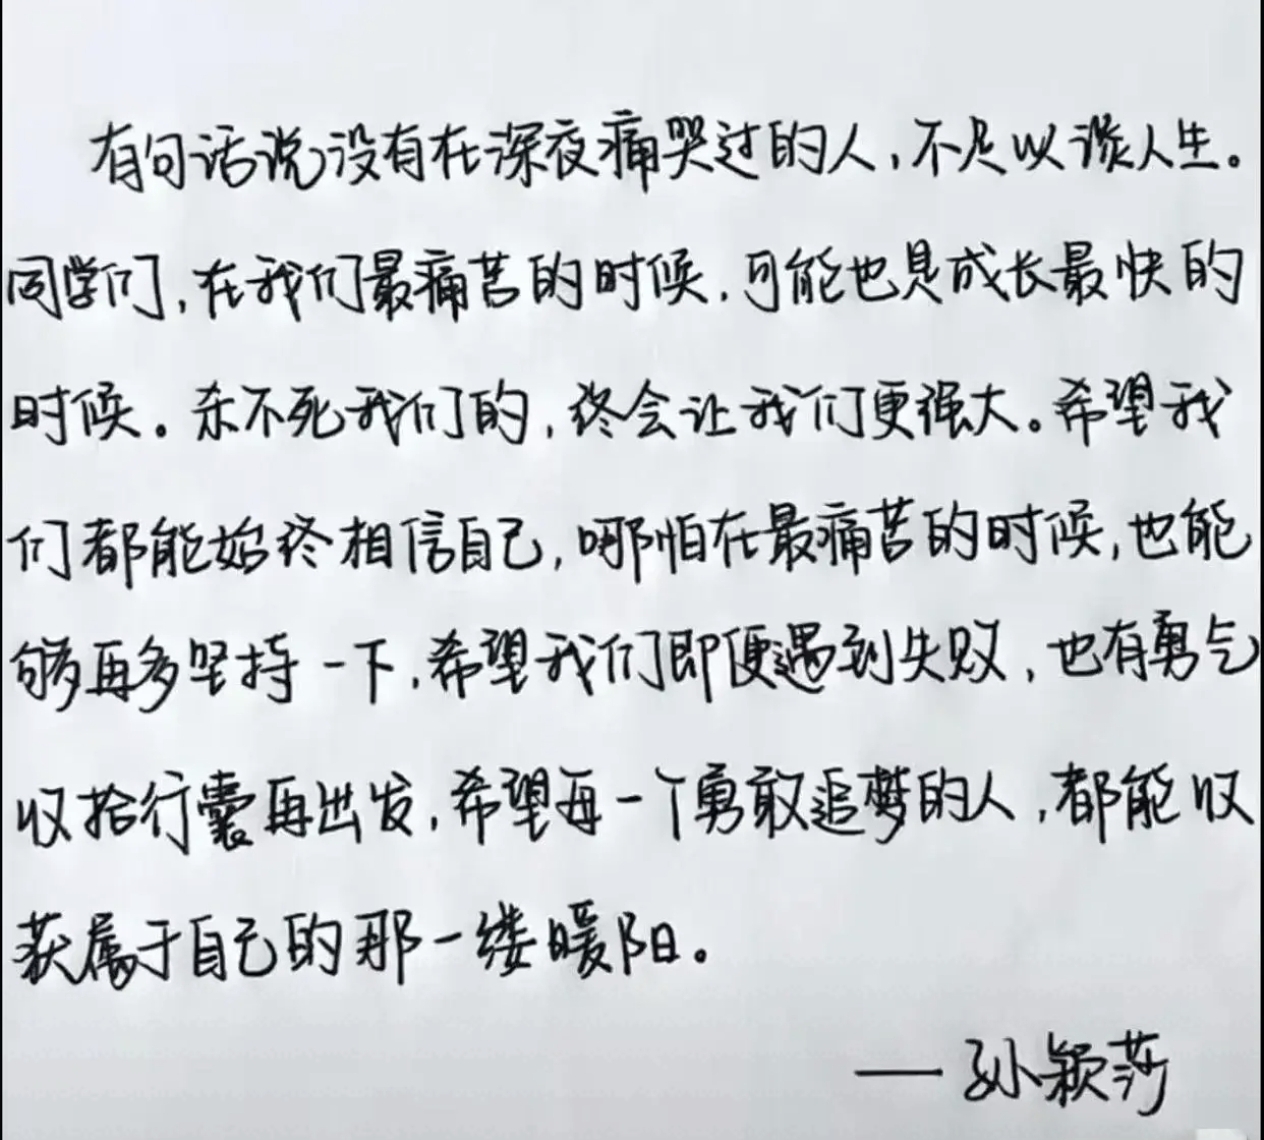 有句话说没有在深夜痛哭过的人，不足以谈人生。
同学们，在我们最痛苦的时候，可能也是成长最快的
时候。杀不死我们的，终会让我们更强大。希望我
们都能始终相信自己，哪怕在最痛苦的时候，也能
够再多坚持一下，希望我们即便遇到失败，也有勇气
收拾行囊再出发，希望每一个勇敢追梦的人，都能收
获属于自己的那一缕暖阳。
——孙颖莎